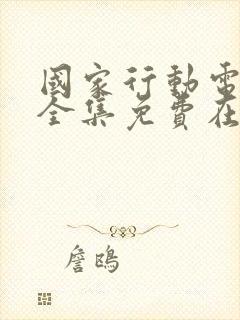 國家行動電
全集免費在
詹鴎